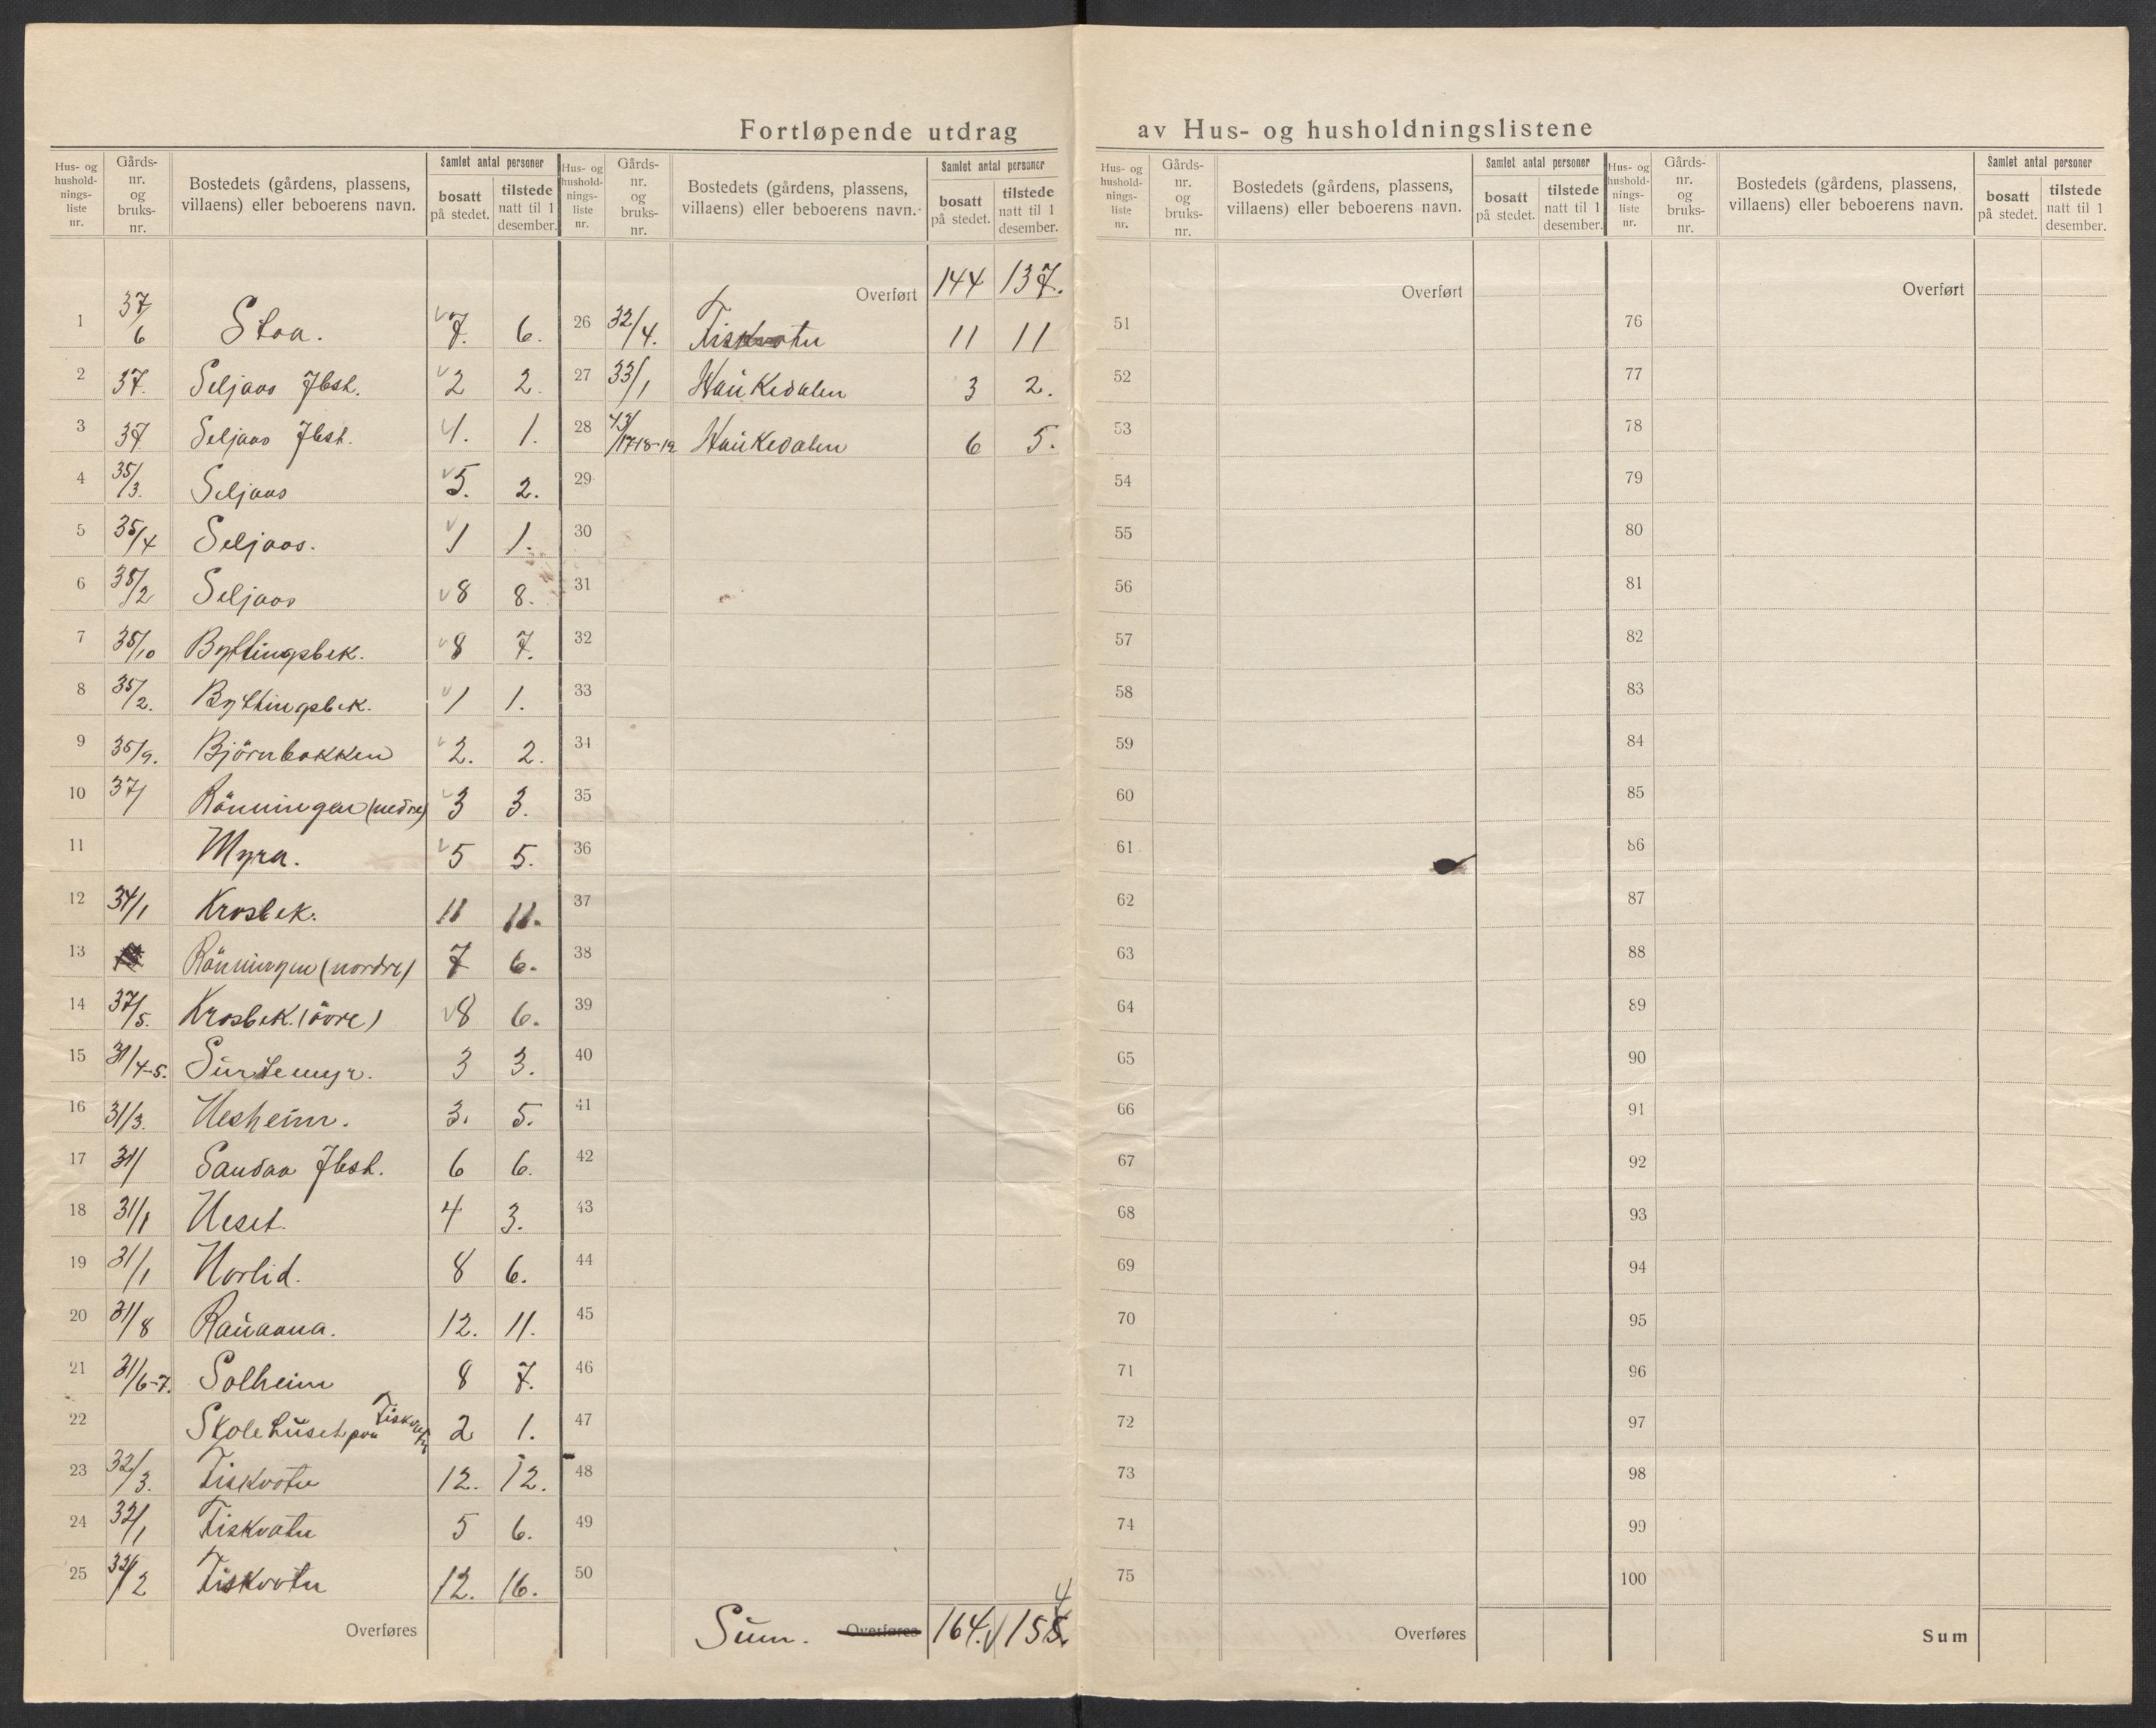 Fortløpende utdrag av Hus- og husholdningslistene
Hus- og husholdnings-liste nr. Gårds-nr. og bruks-nr. Bostedets (gårdens, plassens, villaens) eller beboerens navn. Samlet antal personer bosatt på stedet. tilstede natt til 1 desember.
Hus- og husholdnings-liste nr. Gårds-nr. og bruks-nr. Bostedets (gårdens, plassens, villaens) eller beboerens navn. Samlet antal personer bosatt på stedet. tilstede natt til 1 desember.
Hus- og husholdnings-liste nr. Gårds-nr. og bruks-nr. Bostedets (gårdens, plassens, villaens) eller beboerens navn. Samlet antal personer bosatt på stedet. tilstede natt til 1 desember.
Hus- og husholdnings-liste nr. Gårds-nr. og bruks-nr. Bostedets (gårdens, plassens, villaens) eller beboerens navn. Samlet antal personer bosatt på stedet. tilstede natt til 1 desember.
1 37/6 Stoa. 7. 6.
2 37. Seljaas Jbst. 2 2.
3 37. Seljaas Jbst. 4. 1.
4 35/3. Seljaas 5. 2.
5 35/4 Seljaas. 1 1.
6 35/2 Seljaas 8 8.
7 35/10 Byttingsbek. 8 7.
8 35/2. Byttingsbek. 1 1.
9 35/9. Björnbakken 2. 2.
10 37/ Rönningen (nedre) 3 3.
11 Myra. 5 5.
12 34/1 Krosbek. 11 11.
13 Rönningen (nordre) 7 6.
14 37/5. Krosbek. (övre) 8 6.
15 31/4-5. Surtemyr. 3 3.
16 31/3. Nesheim. 3. 5.
17 31/ Sandaa Jbst. 6 6.
18 31/1 Neset. 4 3.
19 31/1 Norlid. 8 6.
20 31/8 Rauaana. 12. 11.
21 31/6-7. Solheim 8 7.
22 Skolehuset paa Fiskvatn 2 1.
23 32/3. Fiskvatn 12. 12.
24 32/1 Fiskvatn 5 6.
25 32/2 Fiskvatn 12. 16.
Overføres
Overført 144 137.
26 32/4. Fiskvatn 11 11
27 33/1 Haukedalen 3 2.
28 43/17-18-19 Haukedalen 6 5.
29
30
31
32
33
34
35
36
37
38
39
40
41
42
43
44
45
46
47
48
49
50
Sum. Overføres 164. 155. 4
Overført
51
52
53
54
55
56
57
58
59
60
61
62
63
64
65
66
67
68
69
70
71
72
73
74
75
Overføres
Overført
76
77
78
79
80
81
82
83
84
85
86
87
88
89
90
91
92
93
94
95
96
97
98
99
100
Sum